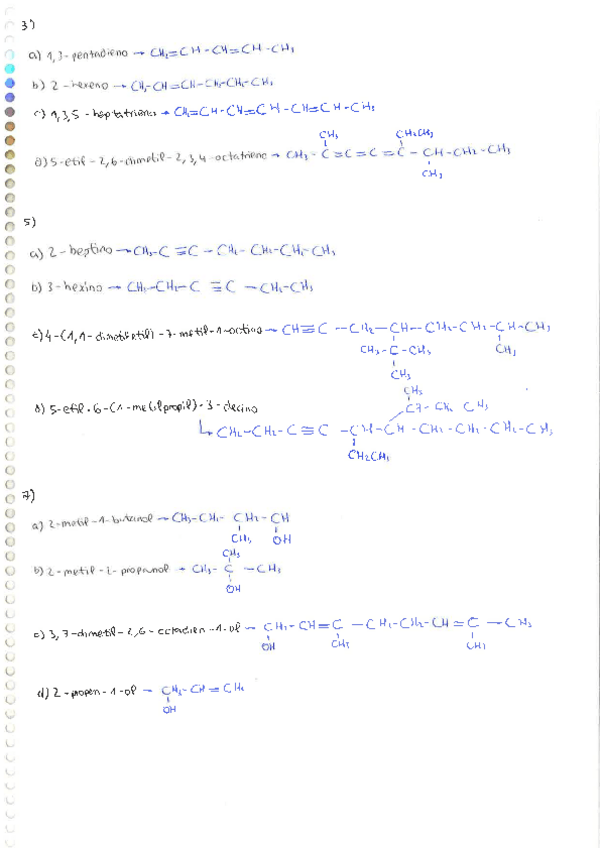 3)
a) 1,3-pentadieno → CH₂=CH-CH=CH-CH₃
b) 2-hexeno → CH₃-CH=CH-CH₂-CH₂-CH₃
c) 1,3,5-heptatrieno → CH₂=CH-CH=CH-CH=CH-CH₃
CH₃ CH₂CH₃
d) 5-etil-2,6-dimetil-2,3,4-octatrieno → CH₃-C=C=C=C-CH-CH₂-CH₃
CH₃
5)
a) 2-heptino → CH₃-C≡C-CH₂-CH₂-CH₂-CH₃
b) 3-hexino → CH₃-CH₂-C≡C-CH₂-CH₃
c) 4-(1,1-dimetiletil)-7-metil-1-octino → CH≡C-CH₂-CH-CH₂-CH₂-CH-CH₃
CH₃-C-CH₃ CH₃
CH₃
CH₃
d) 5-etil-6-(1-metilpropil)-3-decino
↳ CH₃-CH₂-C≡C-CH-CH-CH₂-CH₂-CH₂-CH₃
CH₂CH₃
7)
a) 2-metil-1-butanol → CH₃-CH₂-CH₂-CH
CH₃ OH
CH₃
b) 2-metil-2-propanol → CH₃-C-CH₃
OH
c) 3,7-dimetil-2,6-octadien-1-ol → CH₂-CH=C-CH₂-CH₂-CH=C-CH₃
OH CH₃ CH₃
d) 2-propen-1-ol → CH₂-CH=CH₂
OH